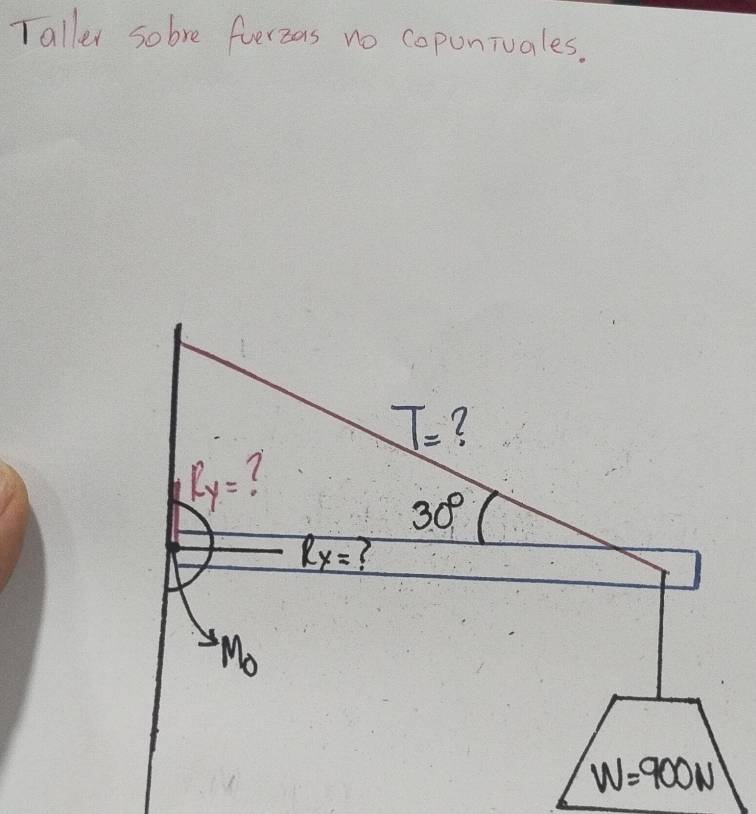 Taller sobre fuerzas no copuntuales.
T=?
Ry=?
30°
Rx=?
Mo
W=900N